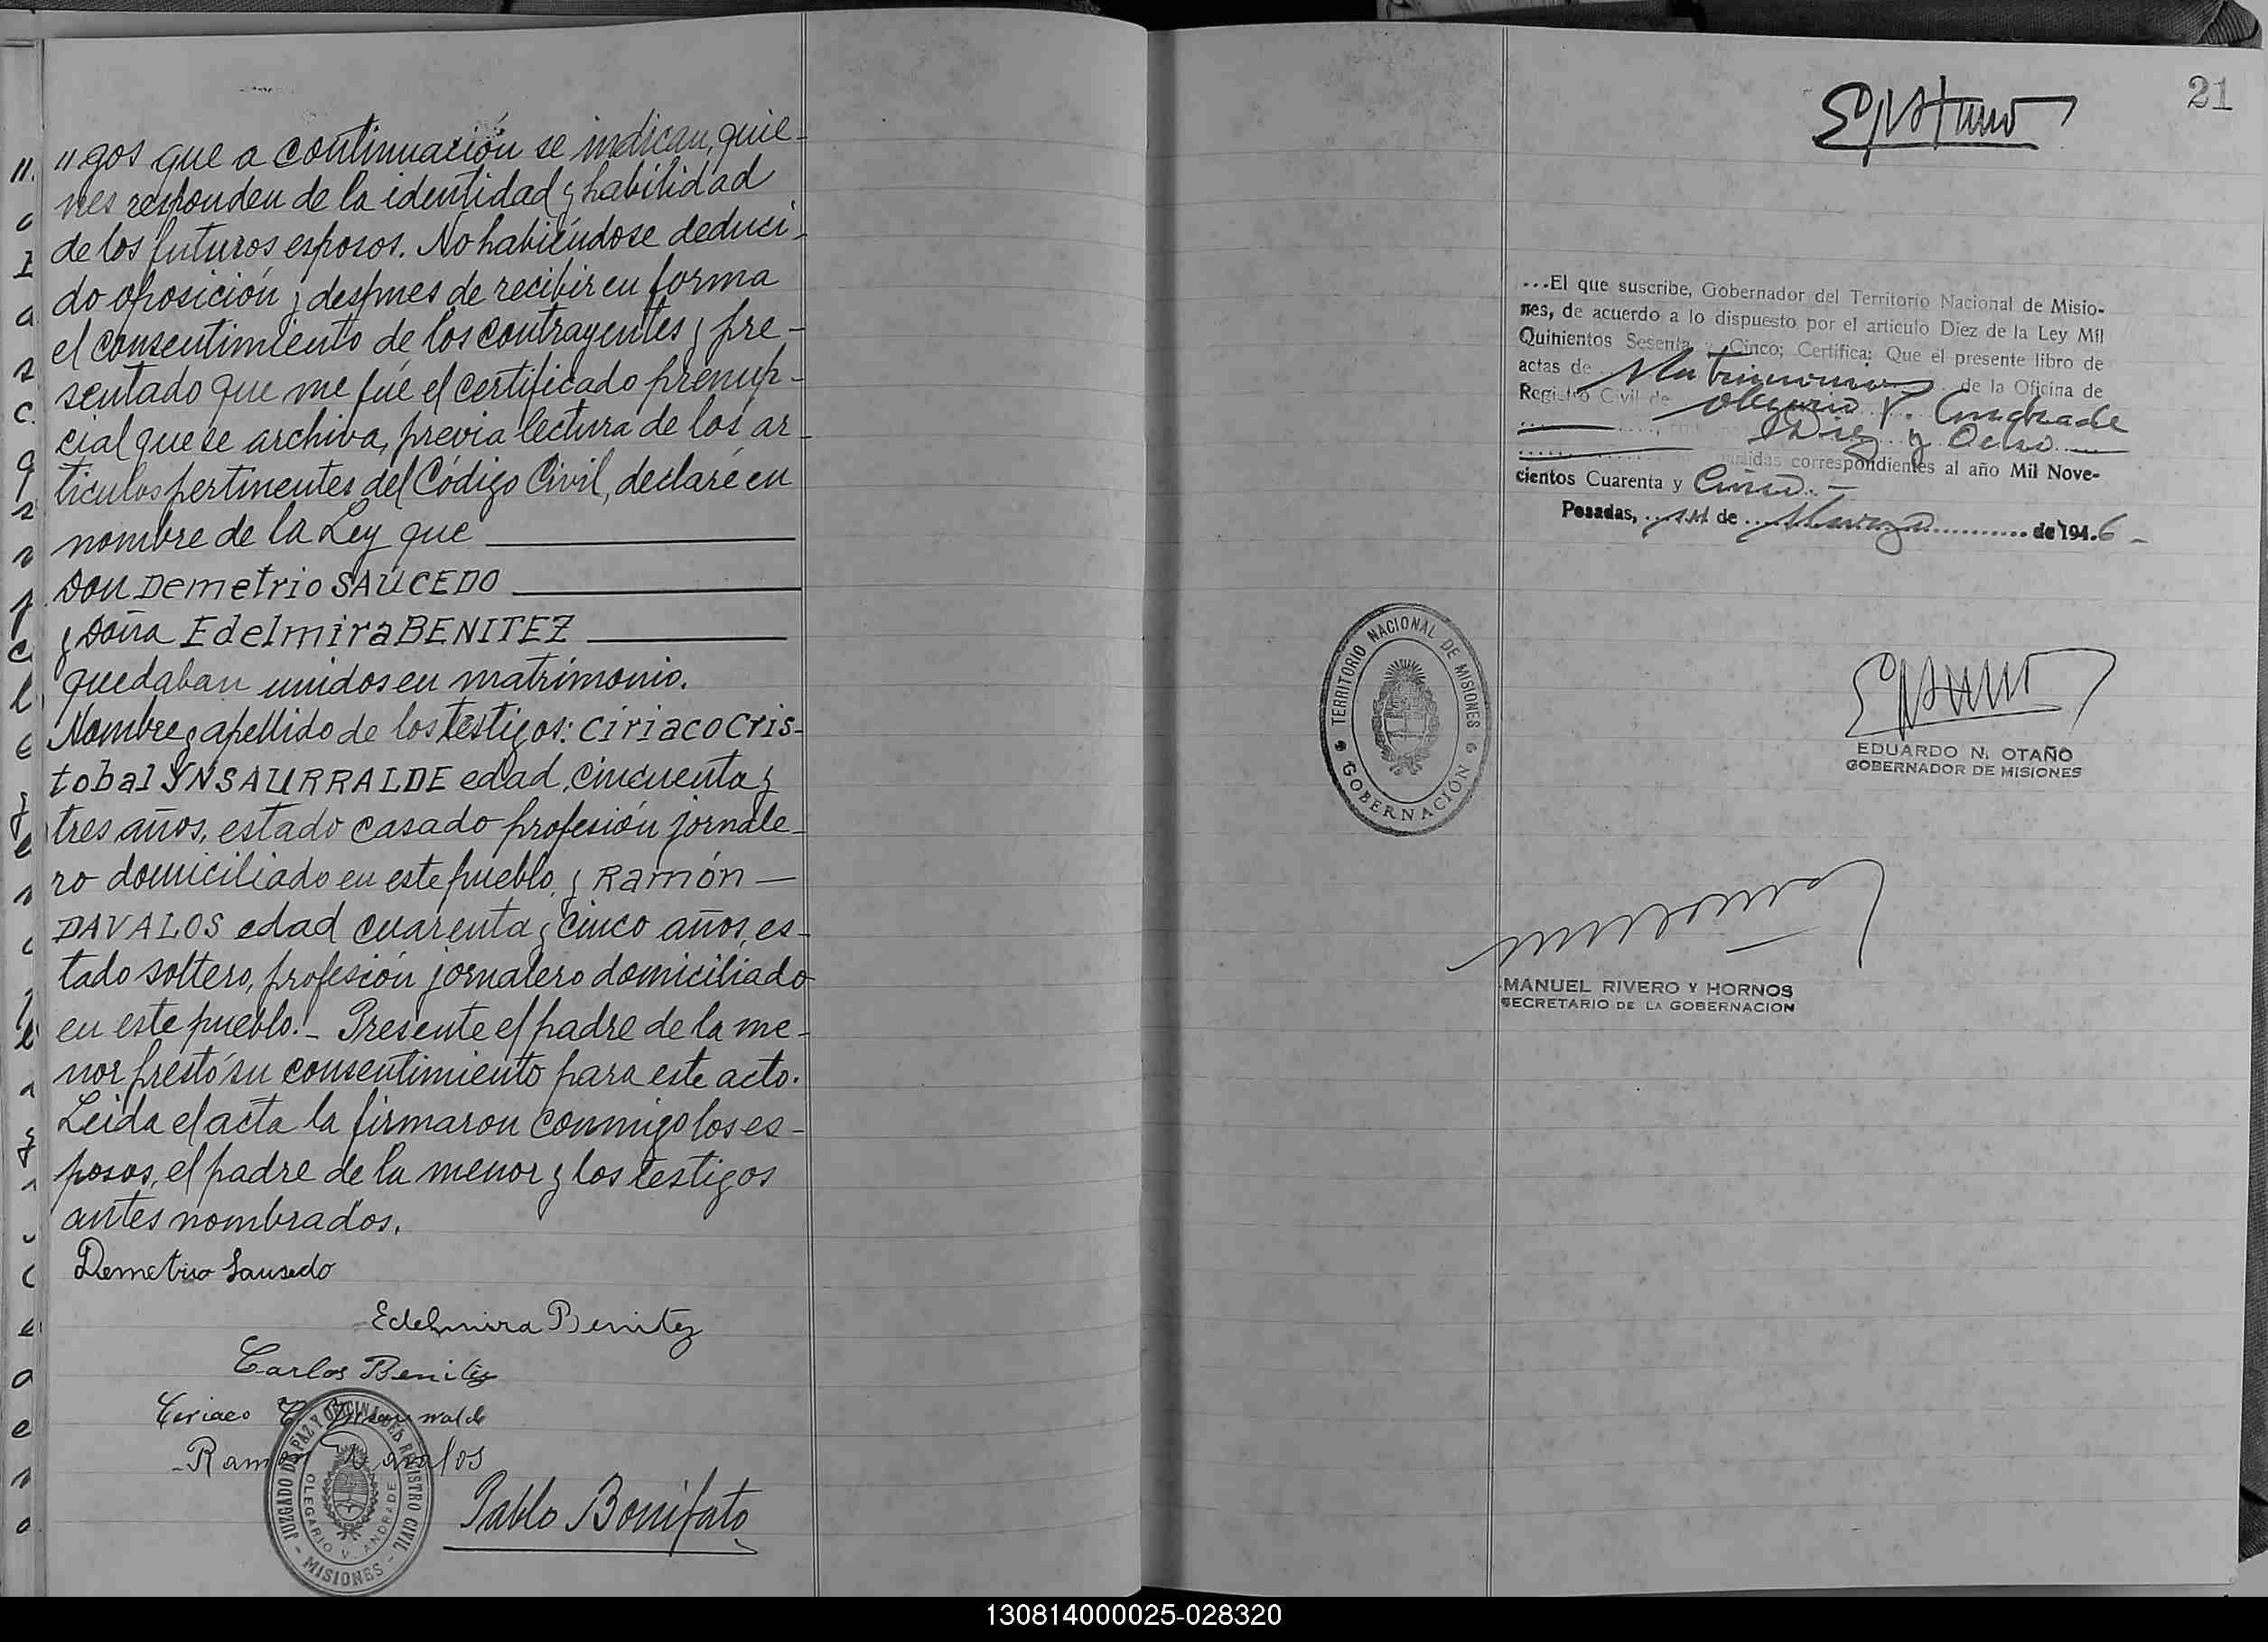 "gos que a continuación se indican, quie-
nes responden de la identidad y habilidad
de los futuros esposos. No habiéndose deduci-
do oposición y despues de recibir en forma
el consentimiento de los contrayentes y pre-
sentado que me fué el certificado prenup-
cial que se archiva, previa lectura de los ar-
tículos pertinentes del Código Civil, declaré en
nombre de la Ley que
Don Demetrio SAUCEDO
y Doña Edelmira BENITEZ
quedaban unidos en matrimonio.
Nombre y apellido de los testigos: Ciriaco Cris-
tobal YNSAURRALDE edad, cincuenta y
tres años, estado casado profesión jornale-
ro domiciliado en este pueblo, y Ramón —
DAVALOS edad cuarenta y cinco años, es-
tado soltero, profesión jornalero domiciliado
en este pueblo.- Presente el padre de la me-
nor prestó su consentimiento para este acto.
Leida el acta la firmaron conmigo los es-
posos, el padre de la menor y los testigos
antes nombrados.
Demetrio Sausedo
Edelmira Benitez
Carlos Benitez
Ciriaco C. Ynsaurralde
Ramon Davalos
Pablo Bonifato
JUZGADO DE PAZ Y OFICINA DEL REGISTRO CIVIL
OLEGARIO V. ANDRADE
- MISIONES -
21
...El que suscribe, Gobernador del Territorio Nacional de Misio-
nes, de acuerdo a lo dispuesto por el articulo Diez de la Ley Mil
Quinientos Sesenta y Cinco; Certifica: Que el presente libro de
actas de Matrimonios de la Oficina de
Registro Civil de Olegario V. Andrade
Diez y Ocho
partidas correspondientes al año Mil Nove-
cientos Cuarenta y Cinco.-
Posadas, de Marzo de 1946-
TERRITORIO NACIONAL DE MISIONES
GOBERNACIÓN
EDUARDO N. OTAÑO
GOBERNADOR DE MISIONES
MANUEL RIVERO Y HORNOS
SECRETARIO DE LA GOBERNACION
130814000025-028320